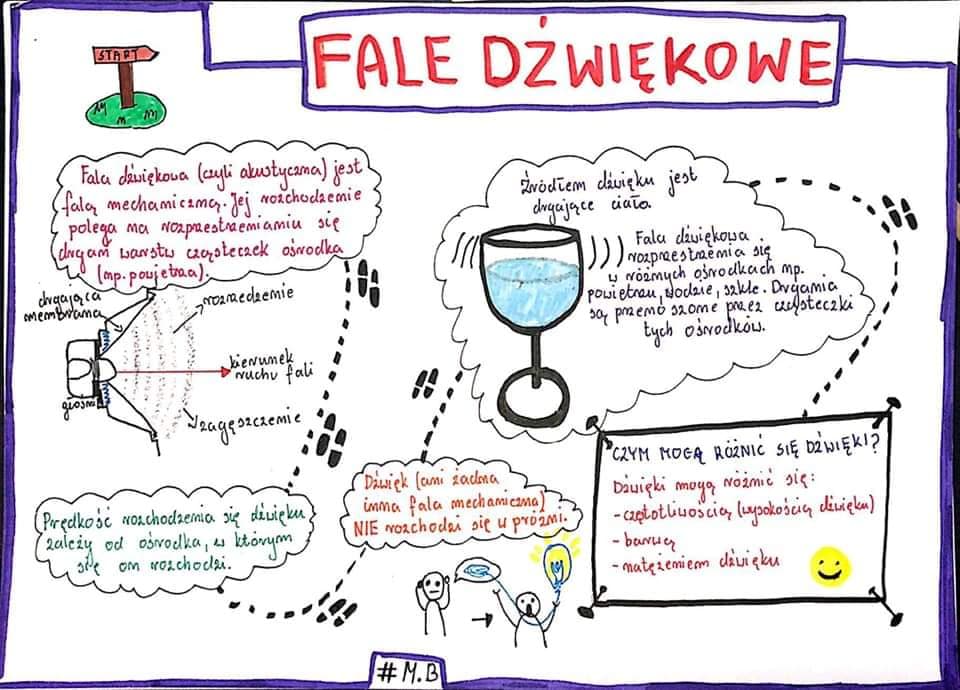 START
FALE DŹWIĘKOWE
Fala dźwiękowa (czyli akustyczna) jest
falą mechaniczną. Jej rozchodzenie
polega na rozprzestrzenianiu się
drgań warstw cząsteczek ośrodka
(np. powietrza).
drgająca
membrana
rozrzedzenie
kierunek
ruchu fali
głośnik
zagęszczenie
Prędkość rozchodzenia się dźwięku
zależy od ośrodka, w którym
się on rozchodzi.
Dźwięk (ani żadna
inna fala mechaniczna)
NIE rozchodzi się w próżni.
Źródłem dźwięku jest
drgające ciało.
Fala dźwiękowa
rozprzestrzenia się
w różnych ośrodkach np.
powietrzu, wodzie, szkle. Drgania
są przenoszone przez cząsteczki
tych ośrodków.
CZYM MOGĄ RÓŻNIĆ SIĘ DŹWIĘKI?
Dźwięki mogą różnić się:
- częstotliwością (wysokością dźwięku)
- barwą
- natężeniem dźwięku
#M.B